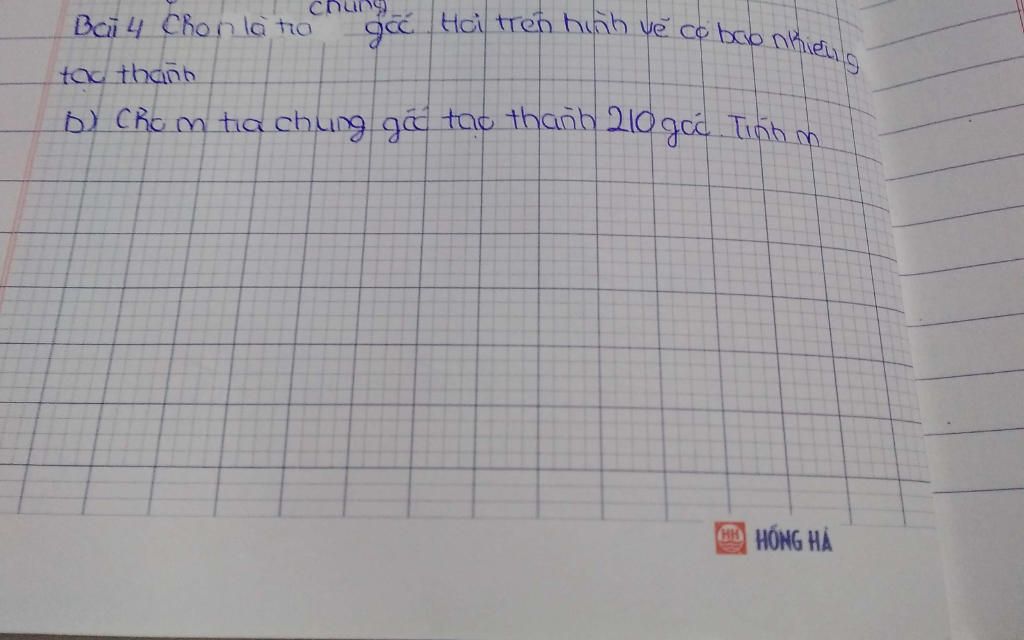 Bài 4 Cho n là tia chung gốc Hỏi trên hình vẽ có bao nhiêu g
tạo thành
b) Cho m tia chung gốc tạo thành 210 gốc Tính m
HH HỒNG HÀ